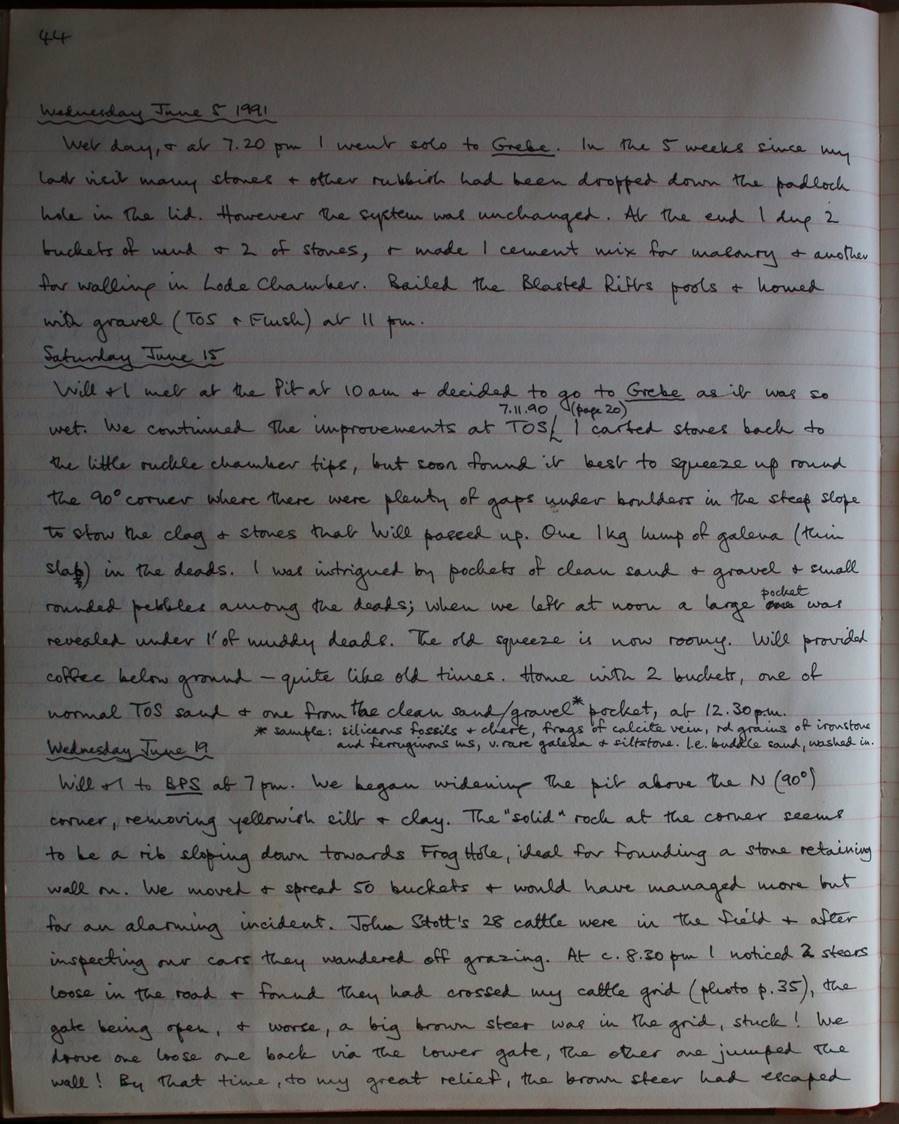 44
Wednesday June 5 1991
Wet day, & at 7.20 pm I went solo to Grebe. In the 5 weeks since my
last visit many stones & other rubbish had been dropped down the padlock
hole in the lid. However the system was unchanged. At the end I dug 2
buckets of mud & 2 of stones, & made 1 cement mix for masonry & another
for walling in Lode Chamber. Bailed the Blasted Rifts pools & homed
with gravel (TOS & Flush) at 11 pm.
Saturday June 15
Will & I met at the Pit at 10 am & decided to go to Grebe as it was so
7.11.90 (page 20)
wet. We continued the improvements at TOS. I carted stones back to
the little ruckle chamber tips, but soon found it best to squeeze up round
the 90° corner where there were plenty of gaps under boulders in the steep slope
to stow the clag & stones that Will passed up. One 1kg lump of galena (thin
slab) in the deads. I was intrigued by pockets of clean sand & gravel & small
pocket
rounded pebbles among the deads; when we left at noon a large was
revealed under 1' of muddy deads. The old squeeze is now roomy. Will provided
coffee below ground – quite like old times. Home with 2 buckets, one of
normal TOS sand & one from the clean sand/gravel* pocket, at 12.30 pm.
* sample: siliceous fossils & chert, frags of calcite vein, rd grains of ironstone
and ferruginous ms, v. rare galena & siltstone. I.e. buddle sand, washed in.
Wednesday June 19
Will & I to BPS at 7 pm. We began widening the pit above the N (90°)
corner, removing yellowish silt & clay. The "solid" rock at the corner seems
to be a rib sloping down towards Frog Hole, ideal for founding a stone retaining
wall on. We moved & spread 50 buckets & would have managed more but
for an alarming incident. John Stott's 28 cattle were in the field & after
inspecting our cars they wandered off grazing. At c. 8.30 pm I noticed 2 steers
loose in the road & found they had crossed my cattle grid (photo p. 35), the
gate being open, & worse, a big brown steer was in the grid, stuck! We
drove one loose one back via the lower gate, the other one jumped the
wall! By that time, to my great relief, the brown steer had escaped